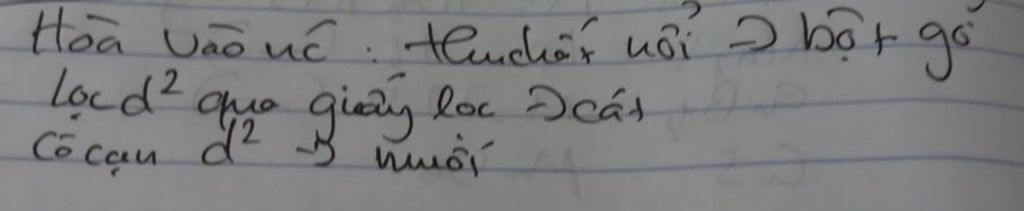 Hoà vào nước : thu chất nổi => bột gỗ
lọc d² qua giấy lọc => cát
Cô cạn d² -> muối